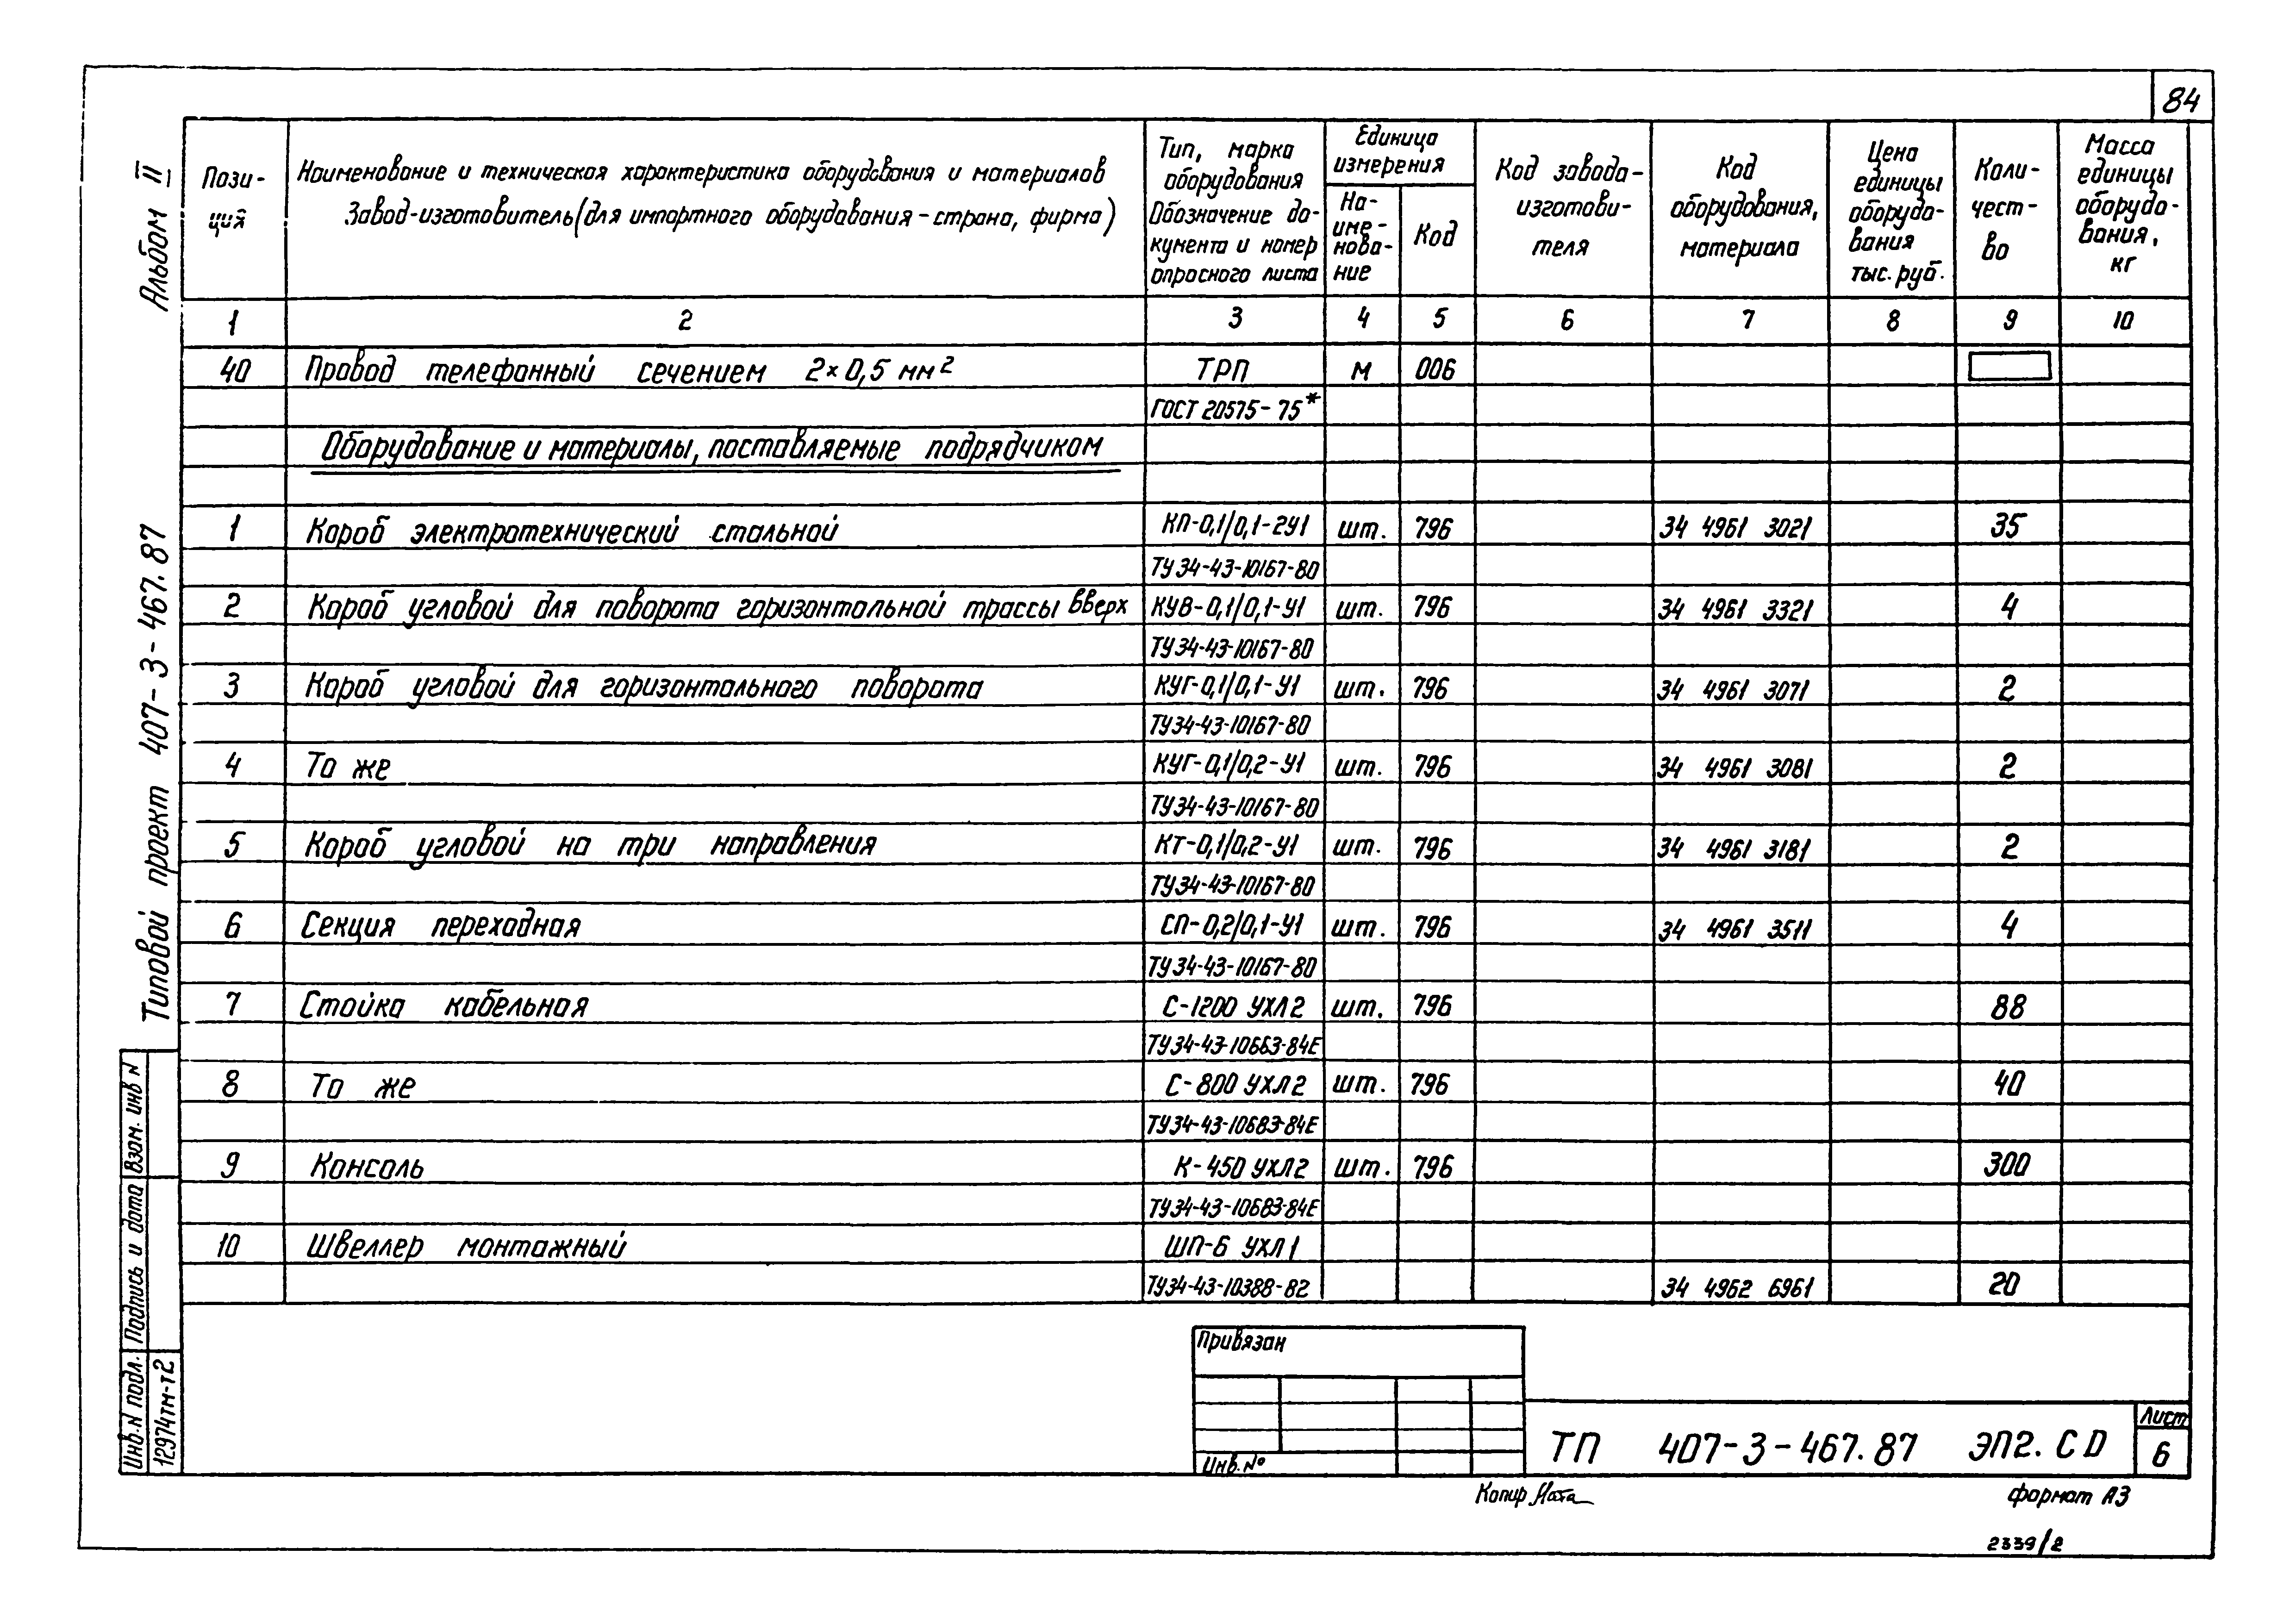 84
Альбом II
Типовой проект 407-3-467.87
Пози-
ция
Наименование и техническая характеристика оборудования и материалов
Завод-изготовитель (для импортного оборудования - страна, фирма)
Тип, марка
оборудования
Обозначение до-
кумента и номер
опросного листа
Единица
измерения
На-
име-
нова-
ние
Код
Код завода-
изготови-
теля
Код
оборудования,
материала
Цена
единицы
оборудо-
вания
тыс. руб.
Коли-
чест-
во
Масса
единицы
оборудо-
вания,
кг
1 2 3 4 5 6 7 8 9 10
40 Провод телефонный сечением 2×0,5 мм² ТРП м 006
ГОСТ 20575-75*
Оборудование и материалы, поставляемые подрядчиком
1 Короб электротехнический стальной КП-0,1/0,1-2У1 шт. 796 34 4961 3021 35
ТУ34-43-10167-80
2 Короб угловой для поворота горизонтальной трассы вверх КУВ-0,1/0,1-У1 шт. 796 34 4961 3321 4
ТУ34-43-10167-80
3 Короб угловой для горизонтального поворота КУГ-0,1/0,1-У1 шт. 796 34 4961 3071 2
ТУ34-43-10167-80
4 То же КУГ-0,1/0,2-У1 шт. 796 34 4961 3081 2
ТУ34-43-10167-80
5 Короб угловой на три направления КТ-0,1/0,2-У1 шт. 796 34 4961 3181 2
ТУ34-43-10167-80
6 Секция переходная СП-0,2/0,1-У1 шт. 796 34 4961 3511 4
ТУ34-43-10167-80
7 Стойка кабельная С-1200 УХЛ2 шт. 796 88
ТУ34-43-10663-84Е
8 То же С-800 УХЛ2 шт. 796 40
ТУ34-43-10683-84Е
9 Консоль К-450 УХЛ2 шт. 796 300
ТУ34-43-10683-84Е
10 Швеллер монтажный ШП-Б УХЛ1
ТУ34-43-10388-82 34 4962 6961 20
Взам. инв N
Подпись и дата
Инв.N подл.
12974тм-т2
Привязан
Инв.№
ТП 407-3-467.87 ЭП2.СD
Лист
6
Копир
формат А3
2339/2